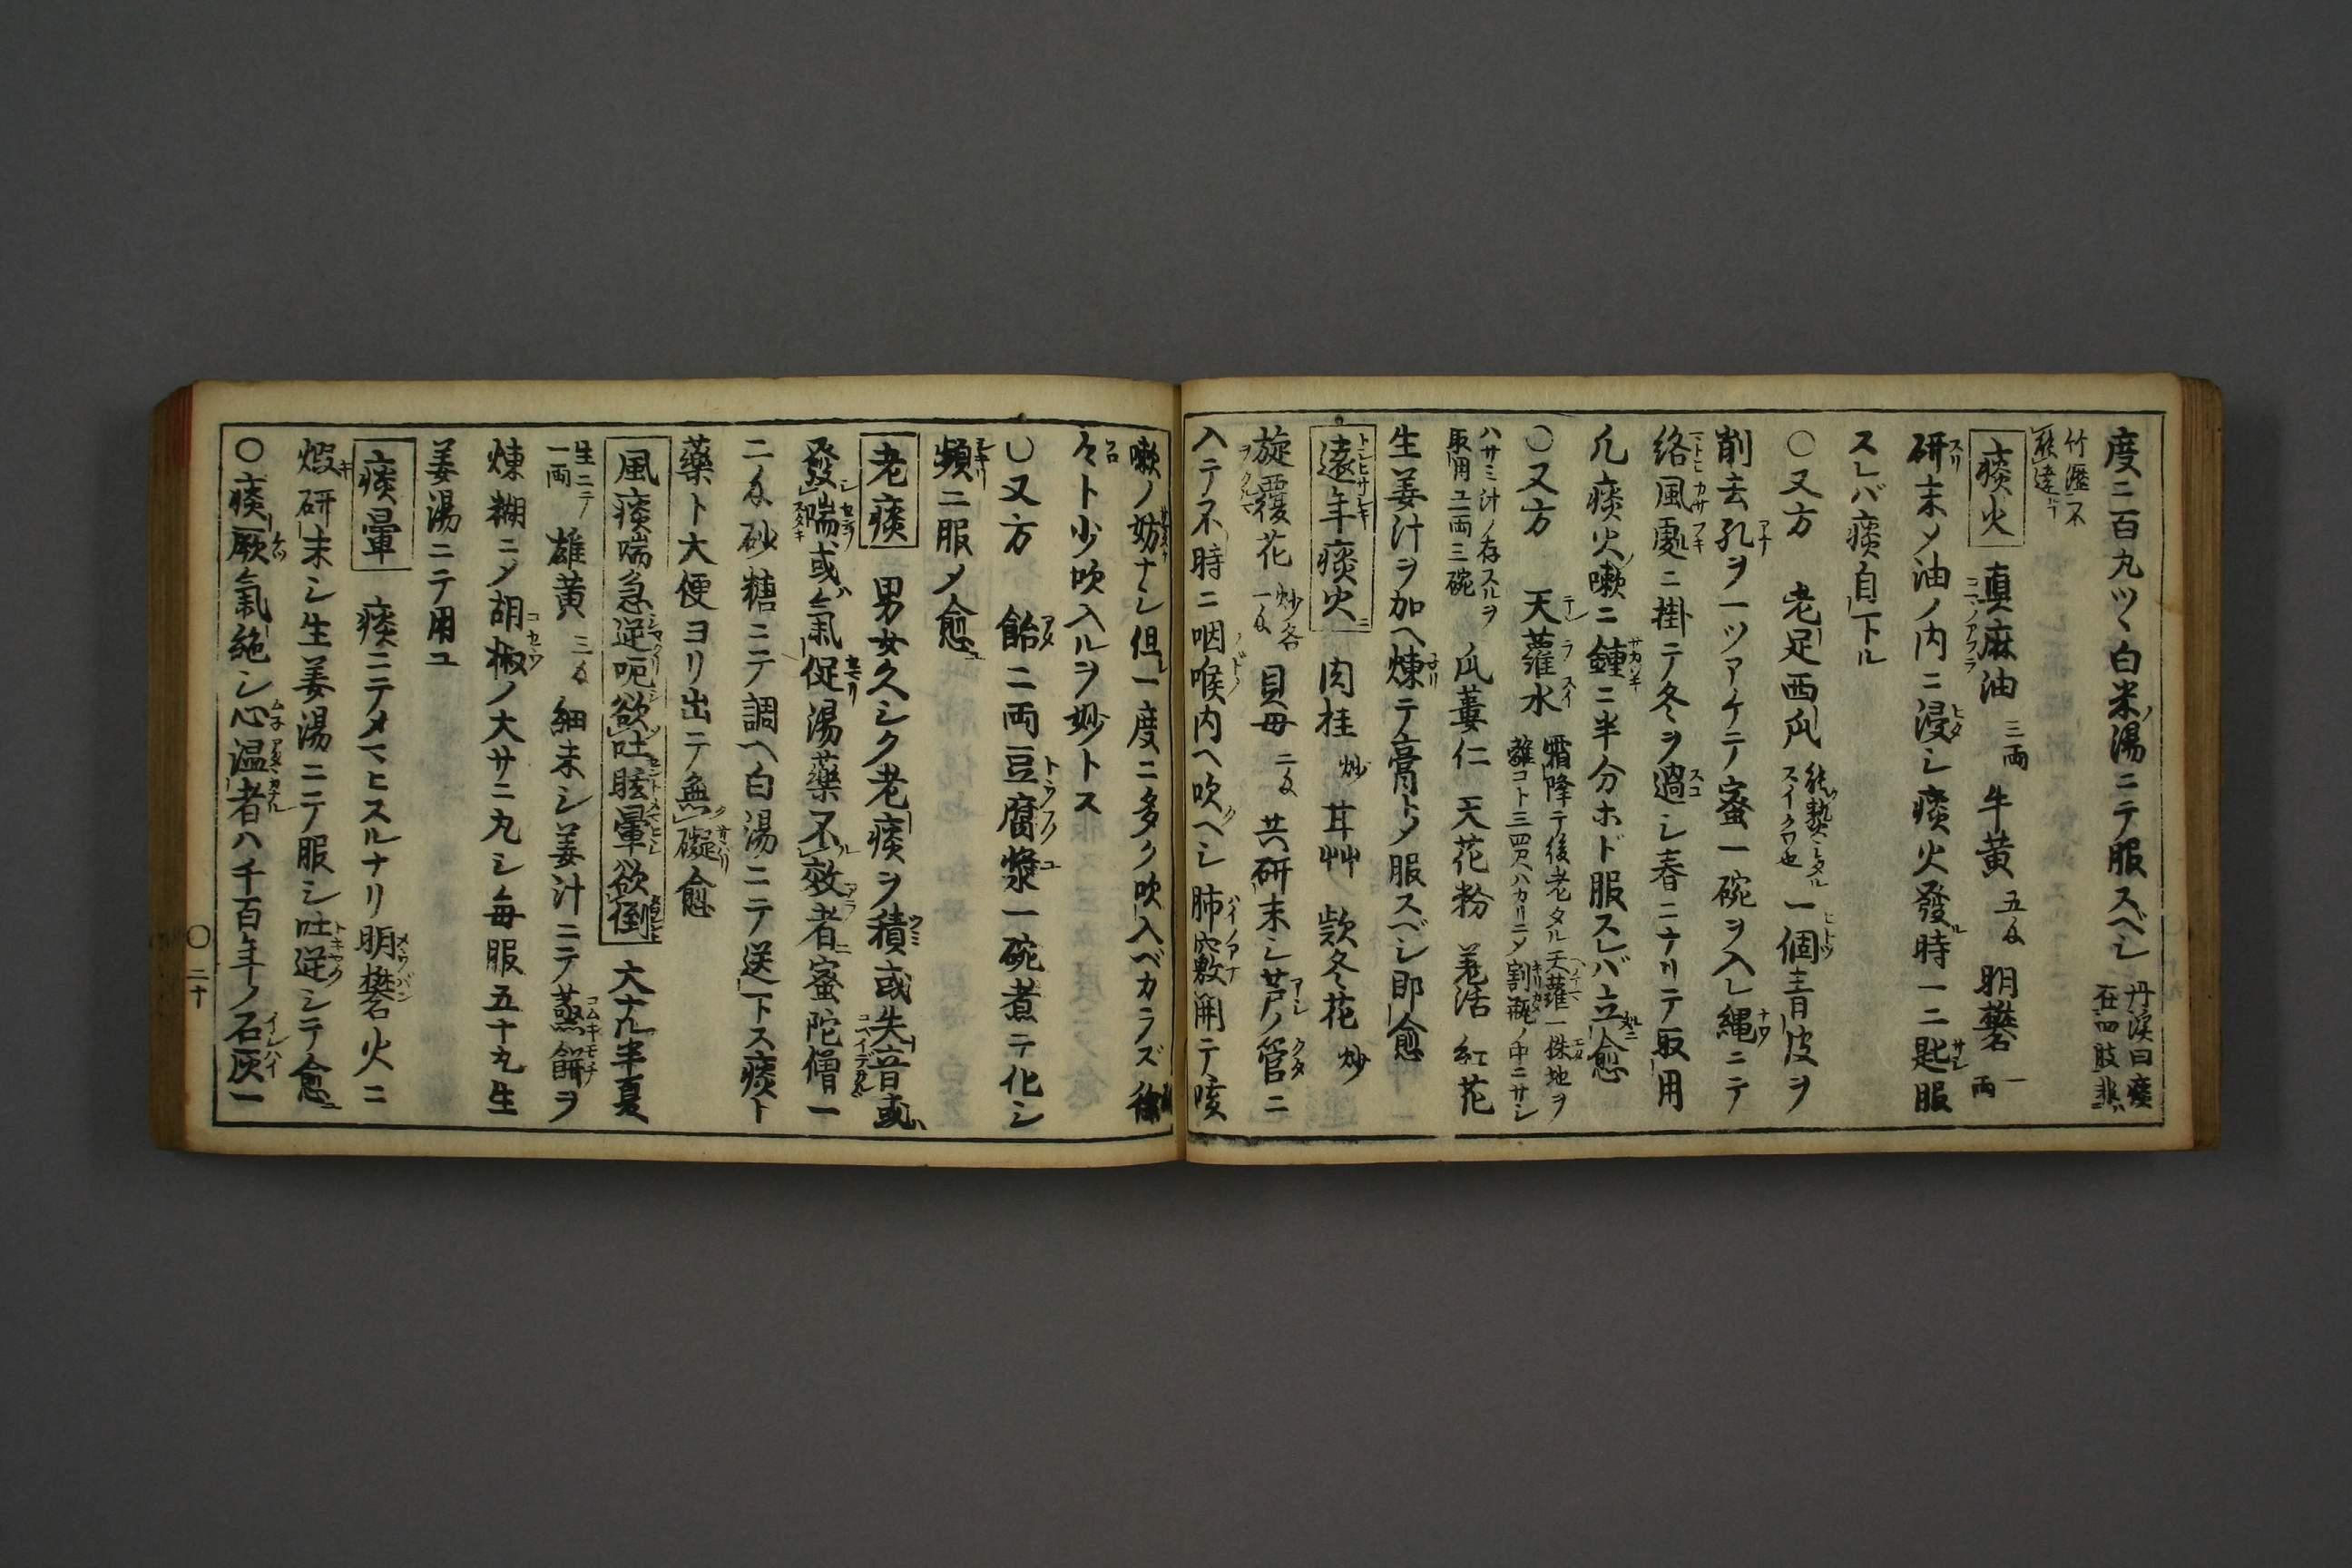 度ニ百丸ツヽ白米湯ニテ服スベシ 丹溪曰痰在四肢非
竹瀝不能達
痰火 真麻油 三両 牛黄 五匁 明礬 一両
研末メ油ノ内ニ浸シ痰火發時一二匙服
スレバ痰自下ル
〇又方 老足西瓜 能熟シタルスイクワ也 一個青皮ヲ
削去孔ヲ一ツアケテ蜜一碗ヲ入レ縄ニテ
絡風處ニ掛テ冬ヲ過シ春ニナリテ取用
凡痰火嗽ニ鍾ニ半分ホド服スレバ立愈
〇又方 天蘿水 霜降テ後老タル天蘿一株地ヲ離コト三四尺ハカリニメ割瓶ノ中ニサシ
ハサミ汁ノ存スルヲ取用ユ両三碗 瓜蔞仁 天花粉 羗活 紅花
生姜汁ヲ加ヘ煉テ膏トメ服スベシ即愈
遠年痰火 肉桂 炒 甘艸 款冬花 炒
旋覆花 炒各一匁 貝母 二匁 共研末シ芦ノ管ニ
入テ不時ニ咽喉内ヘ吹ヘシ肺竅開テ咳
嗽ノ妨ナシ但一度ニ多ク吹入ベカラズ徐
々ト少吹入ルヲ妙トス
〇又方 飴二両豆腐漿一碗煮テ化シ
頻ニ服メ愈
老痰 男女久シク老痰ヲ積或失音或
發喘或氣促湯藥不效者蜜陀僧一
二匁砂糖ニテ調ヘ白湯ニテ送下ス痰ト
藥ト大便ヨリ出テ無礙愈
風痰喘急逆呃欲吐眩暈欲倒 大ナル半夏
生ニテ一両 雄黄 三匁 細末シ姜汁ニテ蒸餅ヲ
煉糊ニメ胡椒ノ大サニ丸シ毎服五十丸生
姜湯ニテ用ユ
痰暈 痰ニテメマヒスルナリ明礬火ニ
煆研末シ生姜湯ニテ服シ吐逆シテ愈
〇痰厥氣絶シ心温者ハ千百年ノ石灰一
〇二十